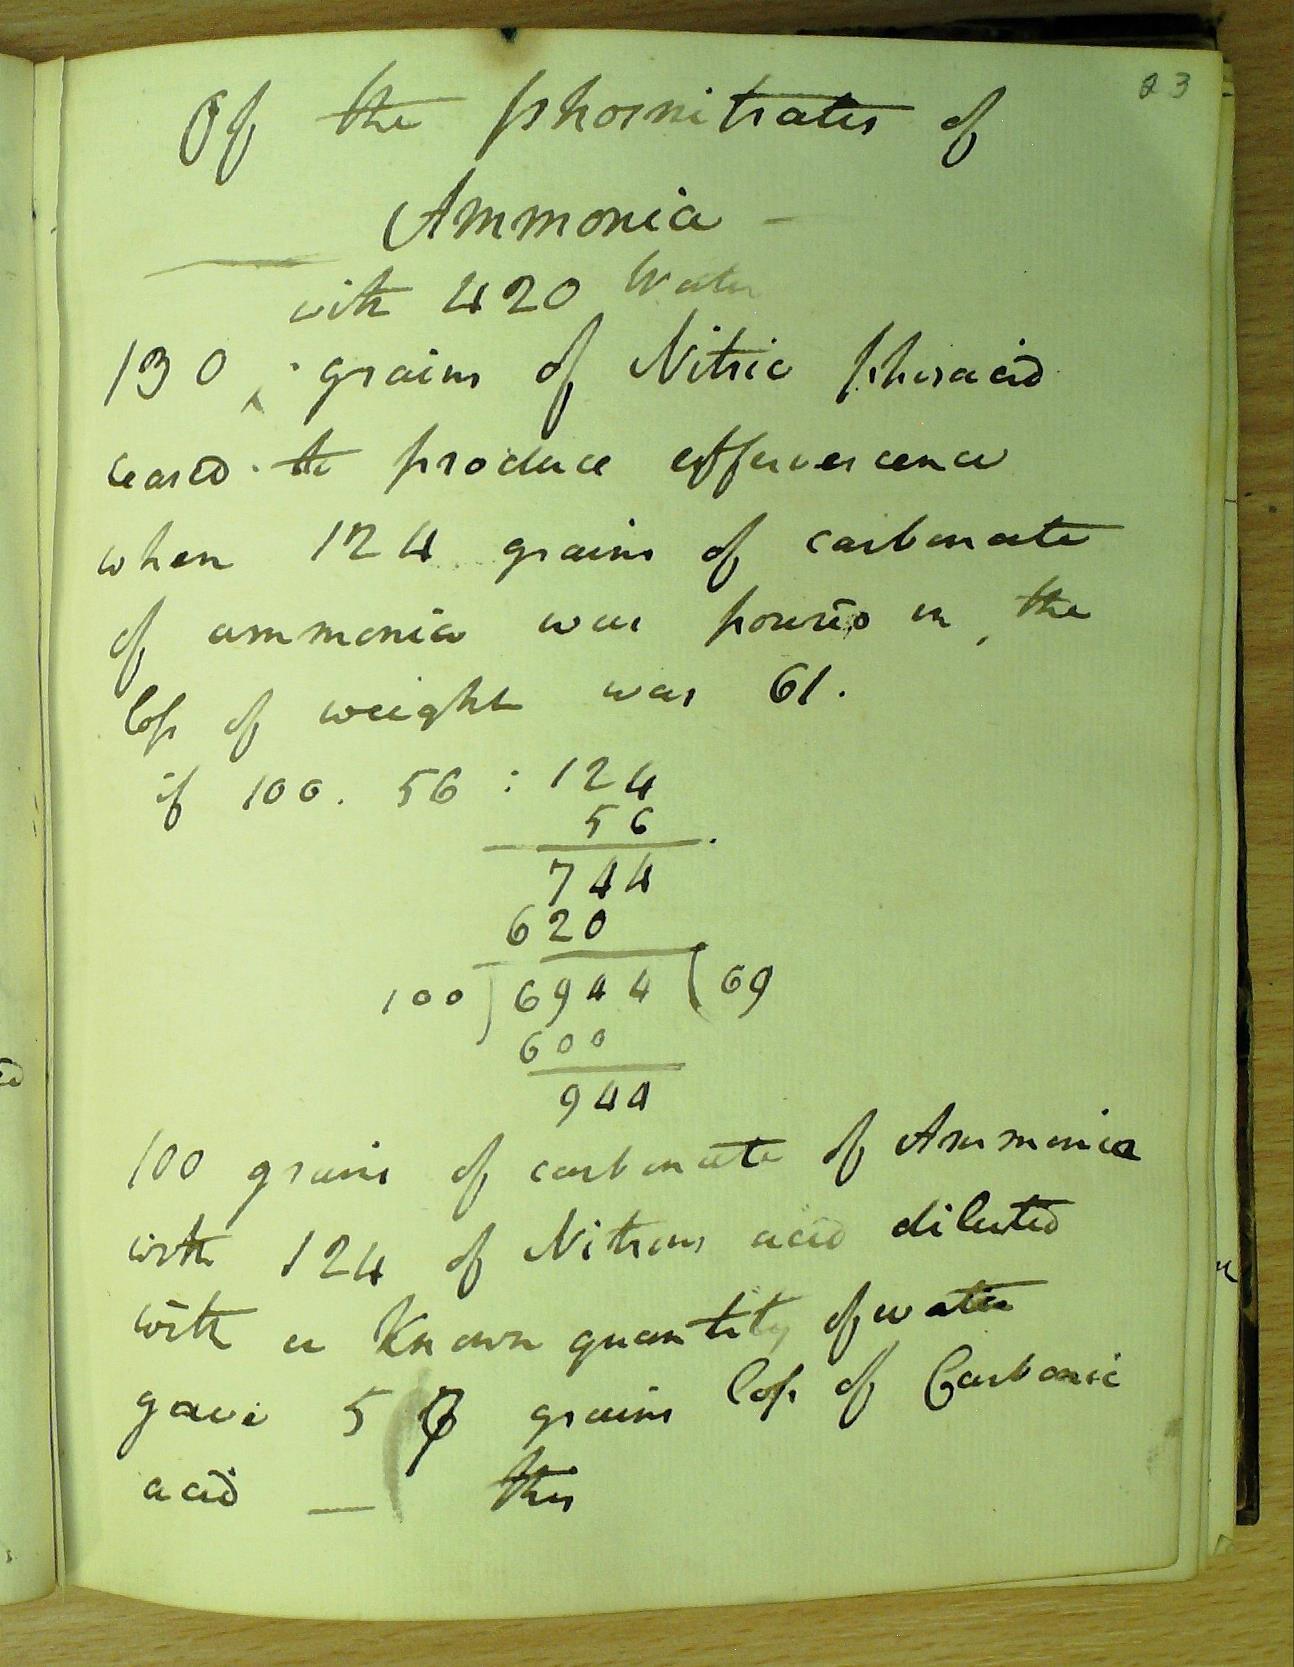 23
Of the phosnitrates of
Ammonia -
with 420 Water
130 ^ grains of Nitric phosacid
ceased to produce effervescence
when 124 grains of carbonate
of ammonia was poured in, the
loss of weight was 61.
if 100. 56 : 124
56
744
620
100) 6944 (69
600
944
100 grains of carbonate of Ammonia
with 124 of Nitrous acid diluted
with a Known quantity of water
gave 5 grains loss of Carbonic
acid — this